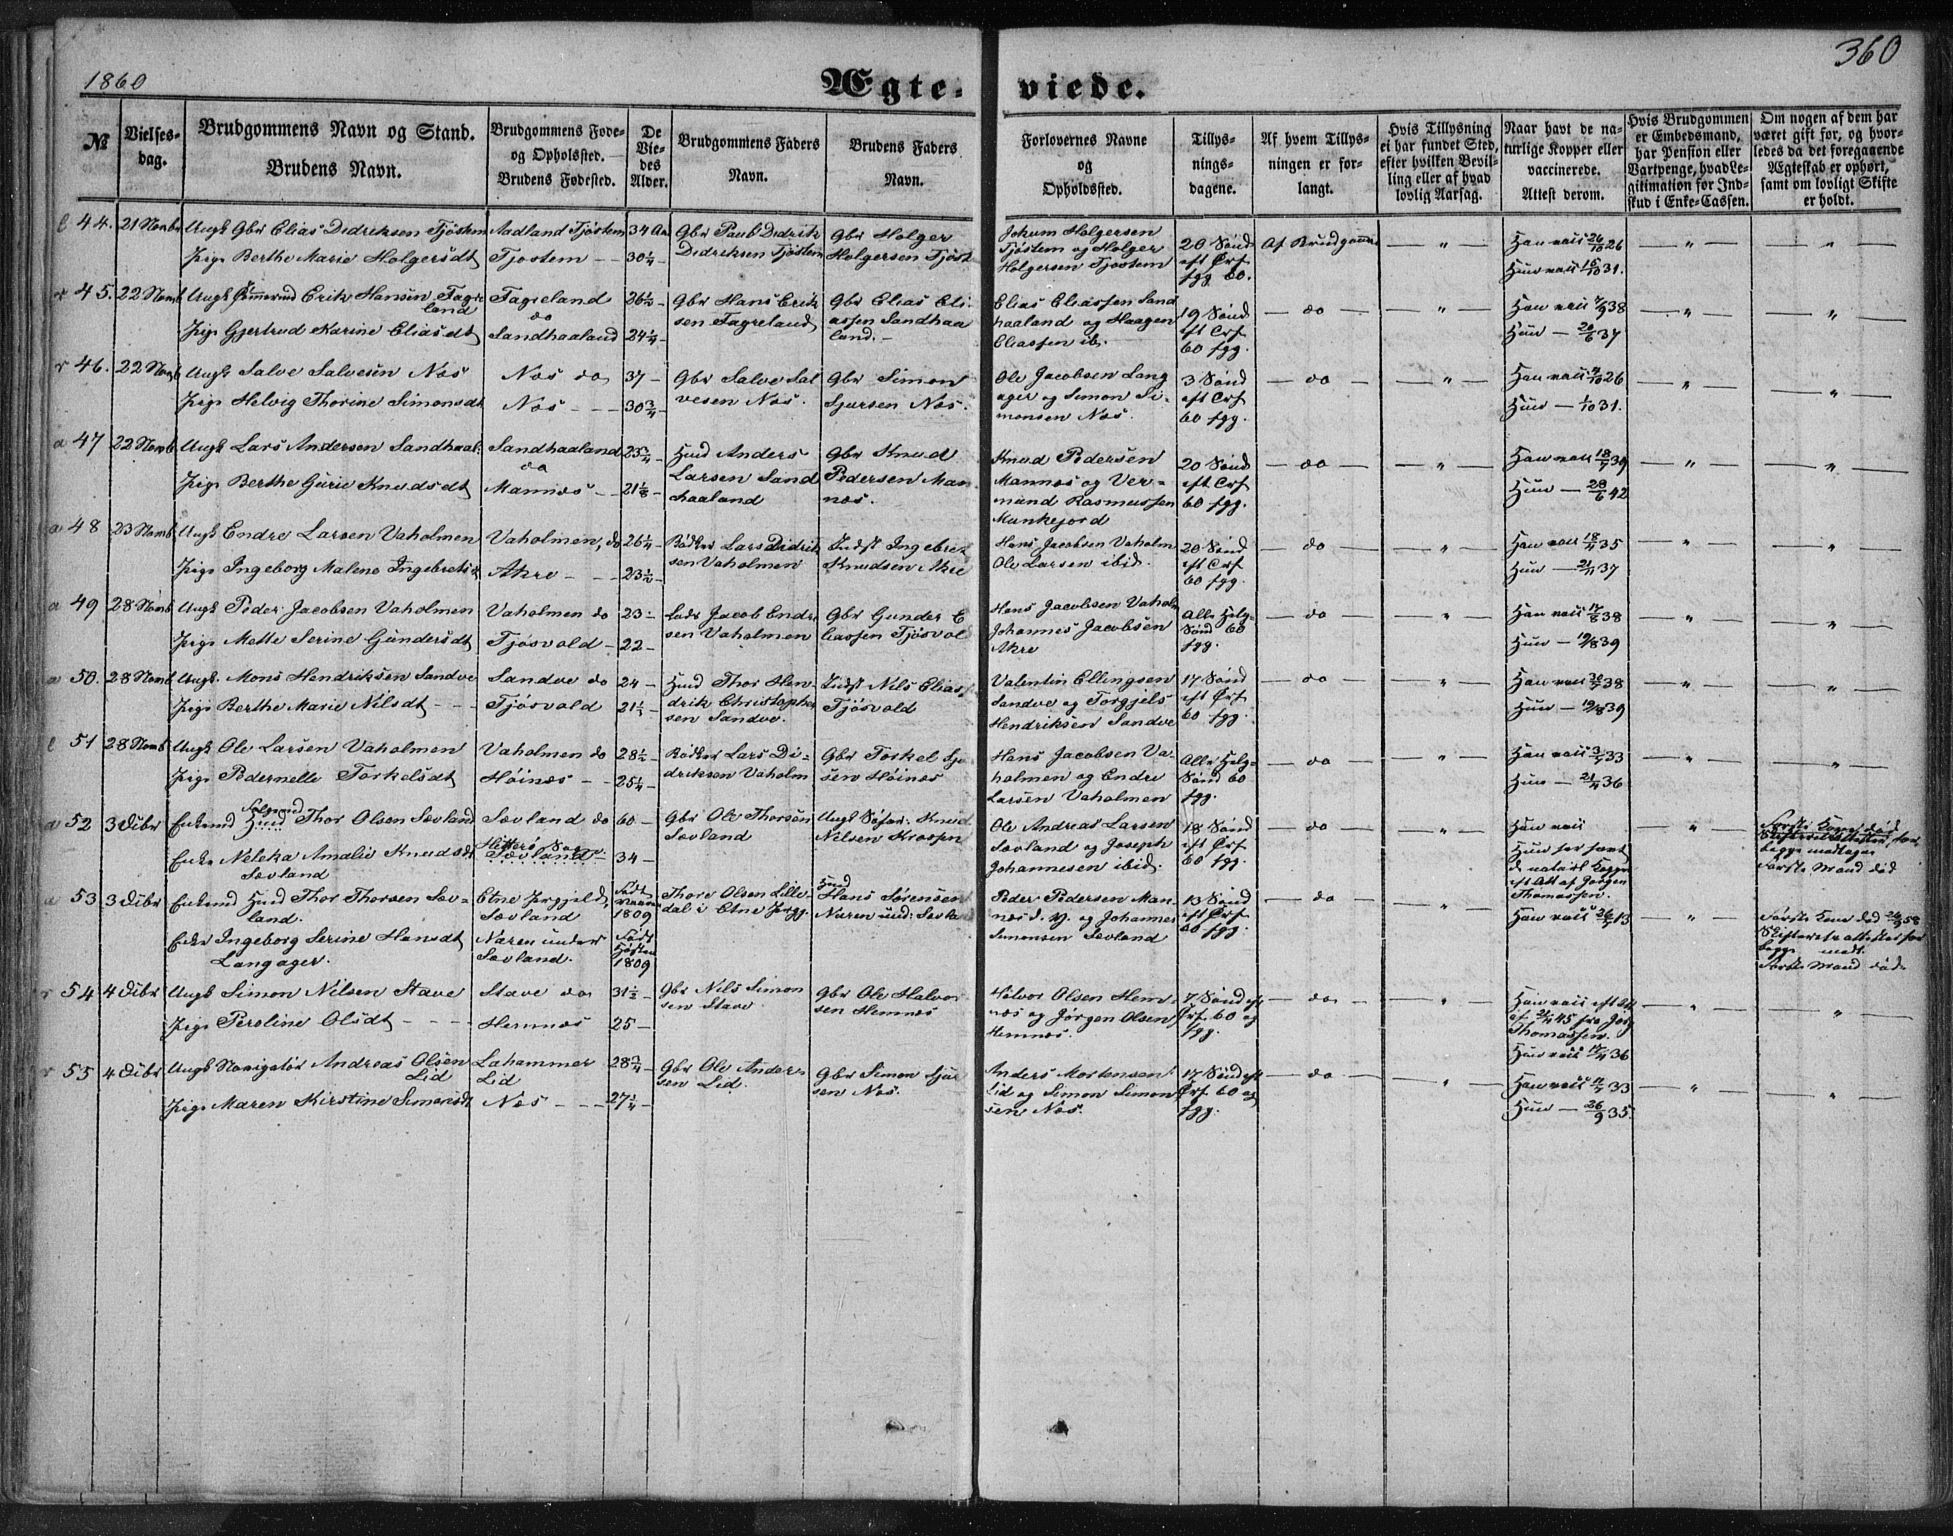 1860
Ægte-
viede.
360
№
Vielses-
dag.
Brudgommens Navn og Stand.
Brudens Navn.
Brudgommens Føde-
og Opholdsted.
Brudens Fødested.
De
Vie-
des
Alder.
Brudgommens Faders
Navn.
Brudens Faders
Navn.
Forlovernes Navne
og
Opholdssted.
Tillys-
nings-
dagene.
Af hvem Tillys-
ningen er for-
langt.
Hvis Tillysning
ei har fundet Sted,
efter hvilken Bevil-
ling eller af hvad
lovlig Aarsag.
Naar havt de na-
turlige Kopper eller
vaccinerede.
Attest derom.
Hvis Brudgommen
er Embedsmand,
har Pension eller
Vartpenge, hvad Le-
gitimation for Ind-
skud i Enke-Cassen.
Om nogen af dem har
været gift før, og hvor-
ledes da det foregaaende
Ægteskab er ophørt,
samt om lovligt Skifte
er holdt.
44. 21 Novbr
Ungk Gbr Elias Didriksen Tjøstem
Pige Berthe Marie Holgersdt
Aadland Tjøstem
Tjøstem
34 Aar
30 1/4
Gbr Poul Didrik
Didriksen Tjøstem
Gbr Holger
Holgersen Tjøst
Jokum Holgersen
Tjøstem og Holger
Holgersen Tjøstem
20 Sønd
eft Trf
fgg 60.
Af Brudgommen
Han vacc 26/10 26
Hun vacc 16/10 31.
45. 22 Novb
Ungk Erik Hansen Fagre
land
Pige Gjertrud Karine Eliasdt
Fagreland
do
Sandhaaland
26 1/2
24 1/4
Gbr Hans Erik
sen Fagreland
Gbr Elias Eli
assen Sandhaa
land.
Elias Eliassen Sand
haaland og Haagen
Eliassen ib.
19 Sønd
eft Trf
60 fgg.
do
Han vacc 38
Hun — 20/6 37
46. 22 Novb
Ungk Salve Salvesen Nes
Pige Helvig Thorine Simonsdt
Nes do
Nes
37
30 3/4
Gbr Salve Sal
vesen Nes.
Gbr Simon
Sjursen Nes.
Ole Jacobsen Lang
ager og Simon Si-
monsen Nes.
3 Sønd
eft Trf
60 fgg.
do
Han vacc 26
Hun — 1/10 31.
47 22 Novb
Ungk Lars Andersen Sandhaal.
Pige Berthe Gurie Knudsdt
Sandhaaland
do
Mannes
23 3/4
21 1/8
Huud Anders
Larsen Sand
haaland
Gbr Knud
Pedersen Man
nes.
Knud Pedersen
Mannes og Ver-
mund Rasmussen
Munkejord
20 Sønd
eft Trf
60 fgg.
do
Han vacc 18/7 39
Hun — 28/6 42
48 23 Novb
Ungk Endre Larsen Vaholmen
Pige Ingeborg Malene Ingebretsdt
Vaholmen, do
Akre
26 1/4
23 1/2
Bødker Lars Didrik
sen Vaholmen
Indst Ingebret
Knudsen Akre
Hans Jacobsen Vaholm
Ole Larsen ibid.
20 Sønd
eft Trf
60 fgg.
do
Han vacc 18/11 35
Hun — 21/11 37
49 28 Novb
Ungk Peder Jacobsen Vaholmen
Pige Mette Serine Gundersdt
Vaholmen do
Tjøsvold
23
22
Jacob Endre
sen Vaholmen
Gbr Gunder E
liassen Tjøsvol
Hans Jacobsen Vahol
Johannes Jacobsen
Akre
Alle Helg
Sønd 60
fgg.
do
Han vacc 17/8 38
Hun — 19/8 39
50. 28 Novb
Ungk. Mons Hendriksen Sandve
Pige Berthe Marie Nilsdt
Sandve do
Tjøsvold
24
21 1/2
Huud Thor Hen-
drik Christopher
sen Sandve.
Indst Nils Elias
Tjøsvold
Valentin Ellingsen
Sandve og Torgjels
Hendriksen Sandve
17 Sønd
eft Trf
60 fgg.
do
Han vacc 38
Hun — 19/8 39
51 28 Novb
Ungk Ole Larsen Vaholmen
Pige Pedernelle Torkelsdt
Vaholmen do
Høines
28 1/2
25 1/4
Bødker Lars Di-
driksen Vaholm
Gbr Torkel Sju
sen Høines
Hans Jacobsen Va-
holmen og Endre
Larsen Vaholmen
Alle Helg
Sønd 60
fgg.
do
Han vacc 33
Hun — 21/4 36
52 3 Dcbr
Enkemd Huud Thor Olsen Sævland
Enke Neleka Amalie Knudsdt
Sævland
Sævland do
Sævland
60
34
Gbr Ole Thorsen
Sævland
Ungk Søfar. Knud
Nilsen
Ole Andreas Larsen
Sævland og Joseph
Johannesen ibid.
18 Sønd
eft Trf
60 fgg.
do
Han vacc
Hun har havt
de naturl Kopper
eft Att af Jørgen
Thomassen.
Første Kone død
begge modtagne
Første Mand død
53 3 Dcbr
Enkemd Huud Thor Thorsen Sæv-
land.
Enke Ingeborg Serine Hansdt
Langager.
Etne Prgjeld
Sævland
Naren under
Sævland.
Født
1809
Født
Høsten
1809
Thore Olsen Lille
dal i Etne Prgj.
Huud
Hans Sørensen
Naren und. Sævla
Peder Pedersen Man
nes d. y. og Johannes
Simonsen Sævland
13 Sønd
eft Trf
60 fgg.
do
Han vacc 26/7 13
Første Kone død 58
Skifteretsattester for
begge modt.
Første Mand død
54 4 Dcbr
Ungk Simon Nilsen Stave
Pige Peroline Olsdt
Stave do
Hemnes
31 1/2
25
Gbr Nils Simon
sen Stave
Gbr Ole Halvor
sen Hemnes
Halvor Olsen Hem-
nes og Jørgen Olsen
Hemnes.
7 Sønd eft
Trf 60 og
fgg.
do
Han vacc eft Att
af 21/4 45 fra Jørg
Thomassen.
Hun vacc 36
55 4 Dcbr
Ungk Navigatør Andreas Olsen
Lid
Pige Maren Kirstine Simonsdt
Lahammer
Lid
Nes
28 3/4
27 1/4
Gbr Ole Ander-
sen Lid.
Gbr Simon Sjur
sen Nes.
Anders Mortensen
Lid og Simon Simon
sen Nes.
17 Sønd eft
Trf 60 og
fgg.
do
Han vacc 33
Hun — 26/9 35.